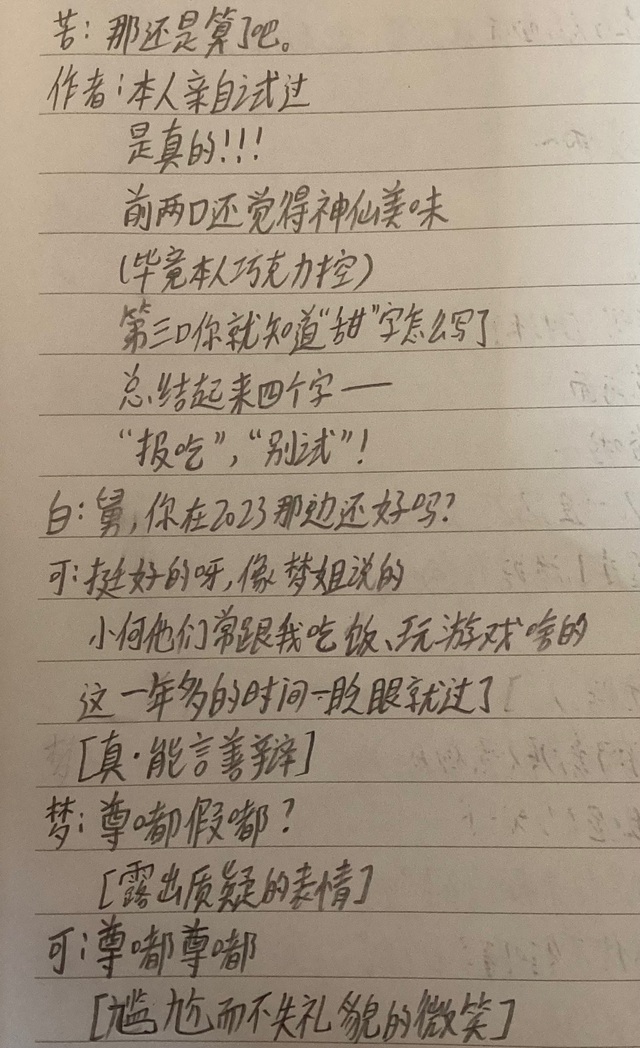 苦：那还是算了吧。
作者：本人亲自试过
是真的！！！
前两口还觉得神仙美味
（毕竟本人巧克力控）
第三口你就知道“甜”字怎么写了
总结起来四个字一
“报吃”，“别试”！
白：舅，你在2023那边还好吗？
可：挺好的呀，像梦姐说的
小何他们常跟我吃饭、玩游戏啥的
这一年多的时间一眨眼就过了
［真·能言善辩］
梦：尊嘟假嘟？
［露出质疑的表情］
可：尊嘟尊嘟
［尴尬而不失礼貌的微笑］